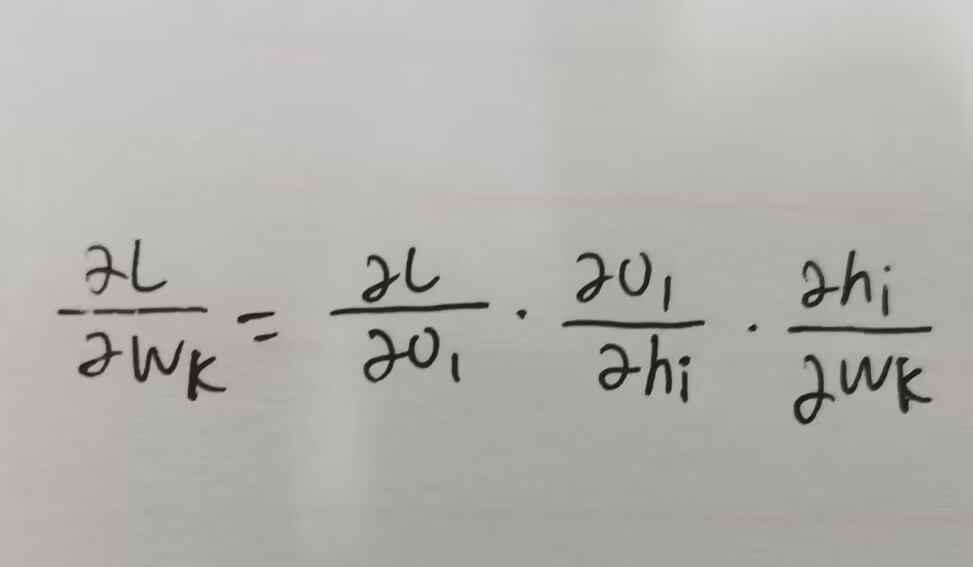 ∂L/∂W_K = ∂L/∂O_1 · ∂O_1/∂h_i · ∂h_i/∂W_K